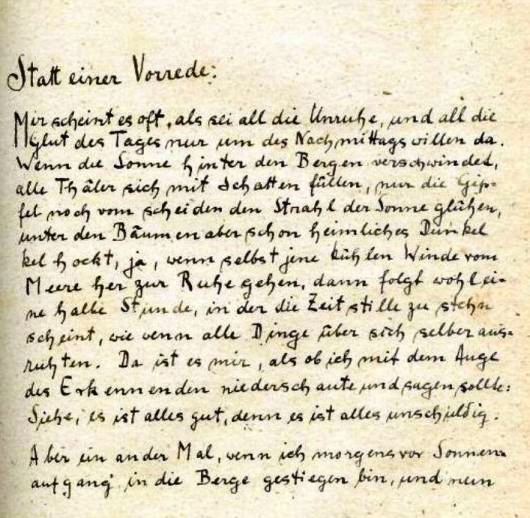 Statt einer Vorrede:
Mir scheint es oft, als sei all die Unruhe, und all die
Glut des Tages nur um des Nachmittags willen da.
Wenn die Sonne hinter den Bergen verschwindet,
alle Thäler sich mit Schatten füllen, nur die Gip-
fel noch vom scheidenden Strahl der Sonne glühen,
unter den Bäumen aber schon heimliches Dunkel
kel hockt, ja, wenn selbst jene kühlen Winde vom
Meere her zur Ruhe gehen, dann folgt wohl ei-
ne halbe Stunde, in der die Zeit stille zu stehn
scheint, wie wenn alle Dinge über sich selber aus-
ruhten. Da ist es mir, als ob ich mit dem Auge
des Erkennenden niederschaute und sagen sollte:
Siehe, es ist alles gut, denn es ist alles unschuldig.
Aber ein ander Mal, wenn ich morgens vor Sonnen-
aufgang in die Berge gestiegen bin, und mein